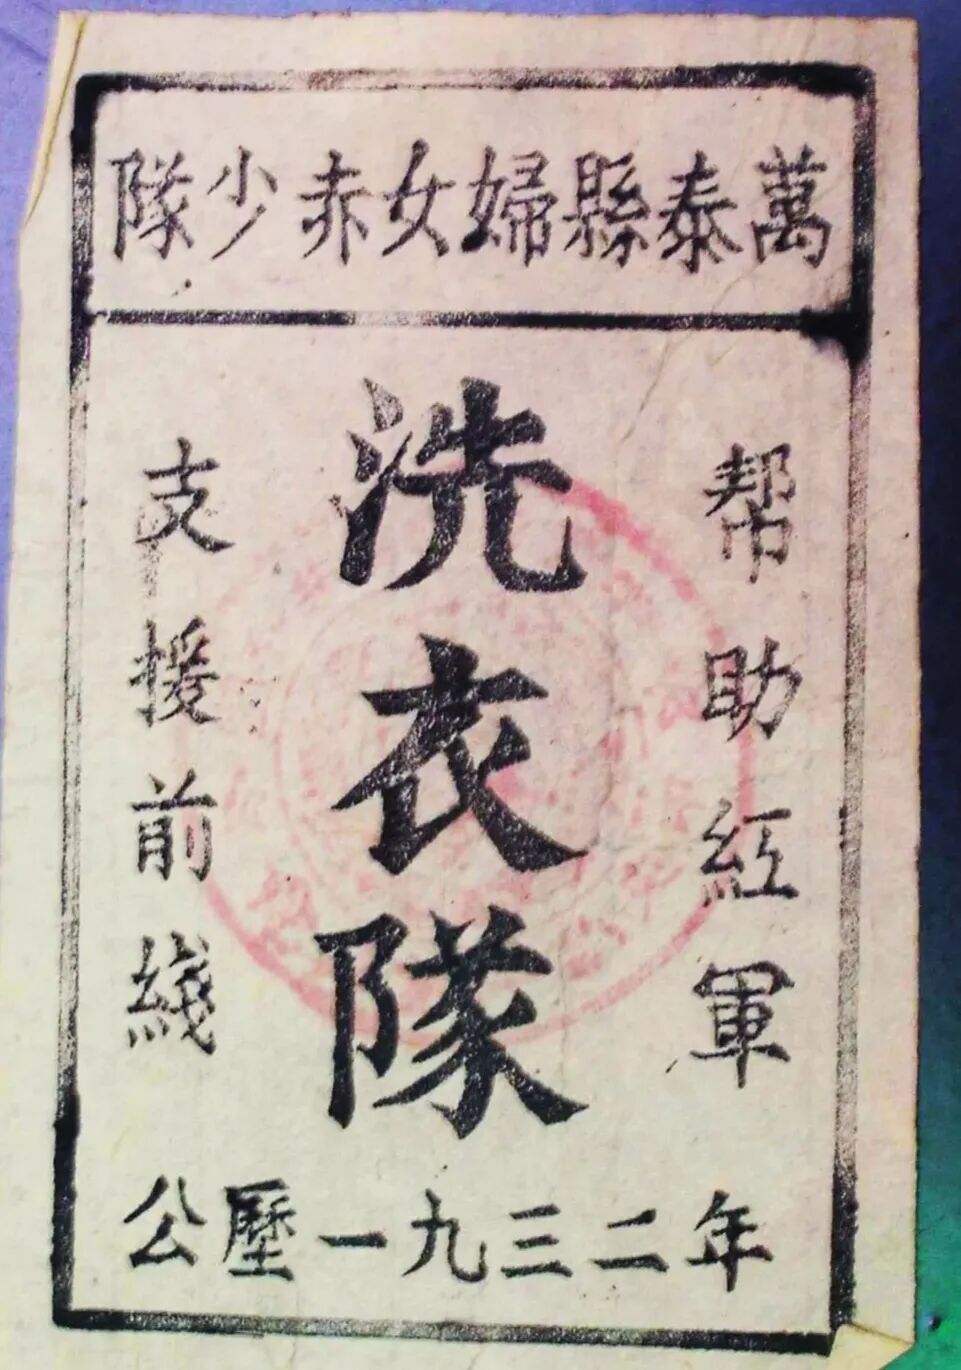 萬泰縣婦女赤少隊
幫助紅軍
洗衣隊
支援前綫
公歷一九三二年